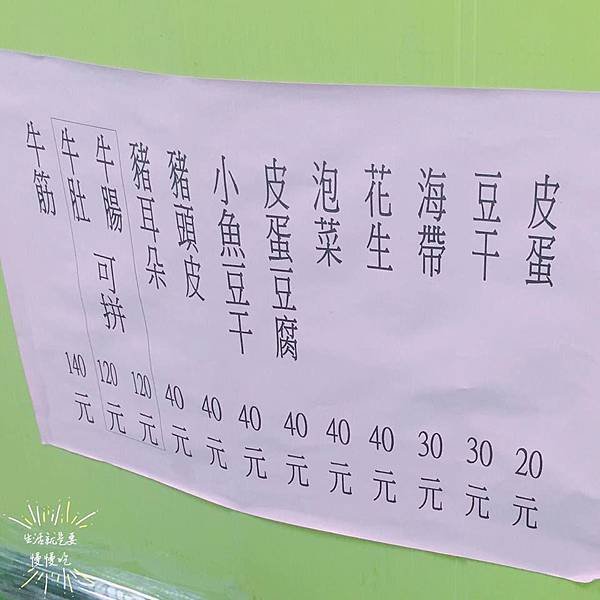 皮蛋 20元
豆干 30元
海帶 30元
花生 40元
泡菜 40元
皮蛋豆腐 40元
小魚豆干 40元
豬頭皮 40元
豬耳朵 40元
牛腸 可拼 120元
牛肚 120元
牛筋 140元
生活就是要
慢慢吃